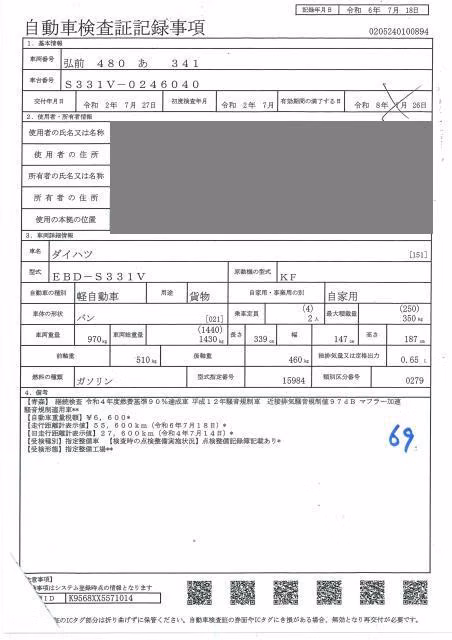 記録年月日 令和 6年 7月 18日
自動車検査証記録事項
0205240100894
1. 基本情報
車両番号 弘前 480 あ 341
車台番号 S331V-0246040
交付年月日 令和 2年 7月 27日 初度検査年月 令和 2年 7月 有効期間の満了する日 令和 8年 7月 26日
2. 使用者・所有者情報
使用者の氏名又は名称
使用者の住所
所有者の氏名又は名称
所有者の住所
使用の本拠の位置
3. 車両詳細情報
車名 ダイハツ [151]
型式 EBD-S331V 原動機の型式 KF
自動車の種別 軽自動車 用途 貨物 自家用・事業用の別 自家用
車体の形状 バン [021] 乗車定員 (4) 2人 最大積載量 (250) 350kg
車両重量 970kg 車両総重量 (1440) 1430kg 長さ 339cm 幅 147cm 高さ 187cm
前軸重 510kg 後軸重 460kg 総排気量又は定格出力 0.65 L
燃料の種類 ガソリン 型式指定番号 15984 類別区分番号 0279
4. 備考
【青森】 継続検査 令和4年度燃費基準90%達成車 平成12年騒音規制車 近接排気騒音規制値97dB マフラー加速
騒音規制適用車**
【自動車重量税額】¥6,600*
【走行距離計表示値】55,600km(令和6年7月18日)*
【旧走行距離計表示値】27,600km(令和4年7月14日)*
【受検種別】指定整備車 【検査時の点検整備実施状況】点検整備記録簿記載あり*
【受検形態】指定整備工場**
69
注意事項】
事項はシステム登録時点の情報となります
ID K9568XX5571014
のICタグ部分は折り曲げずに保管ください。自動車検査証の券面やICタグにき損がある場合、無効となり再交付が必要です。